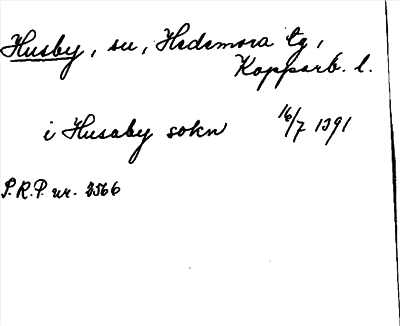 Husby, sn, Hedemora tg,
Kopparb. l.
i Husaby sokn 16/7 1391
S.R.P. nr. 2566